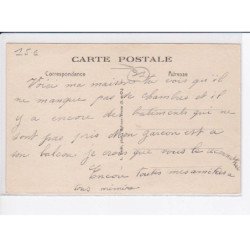 25 €
CARTE POSTALE
Correspondance
Adresse
Voici ma maison tu vois qu'il
ne manque pas de chambres et il
y a encore de batiments qui ne
sont pas pris mon garcon est a
son balcon, je crois que vous le
Encore toutes mes amitiés a
tous